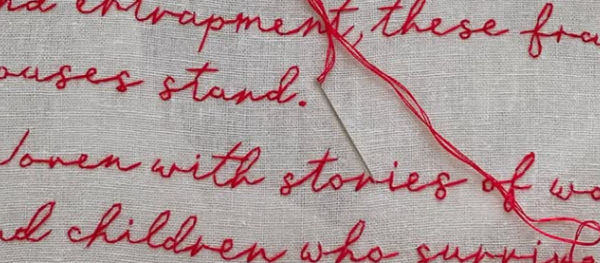 nd entrapment, these fra
ouses stand.
oven with stories of wo
nd children who survivi